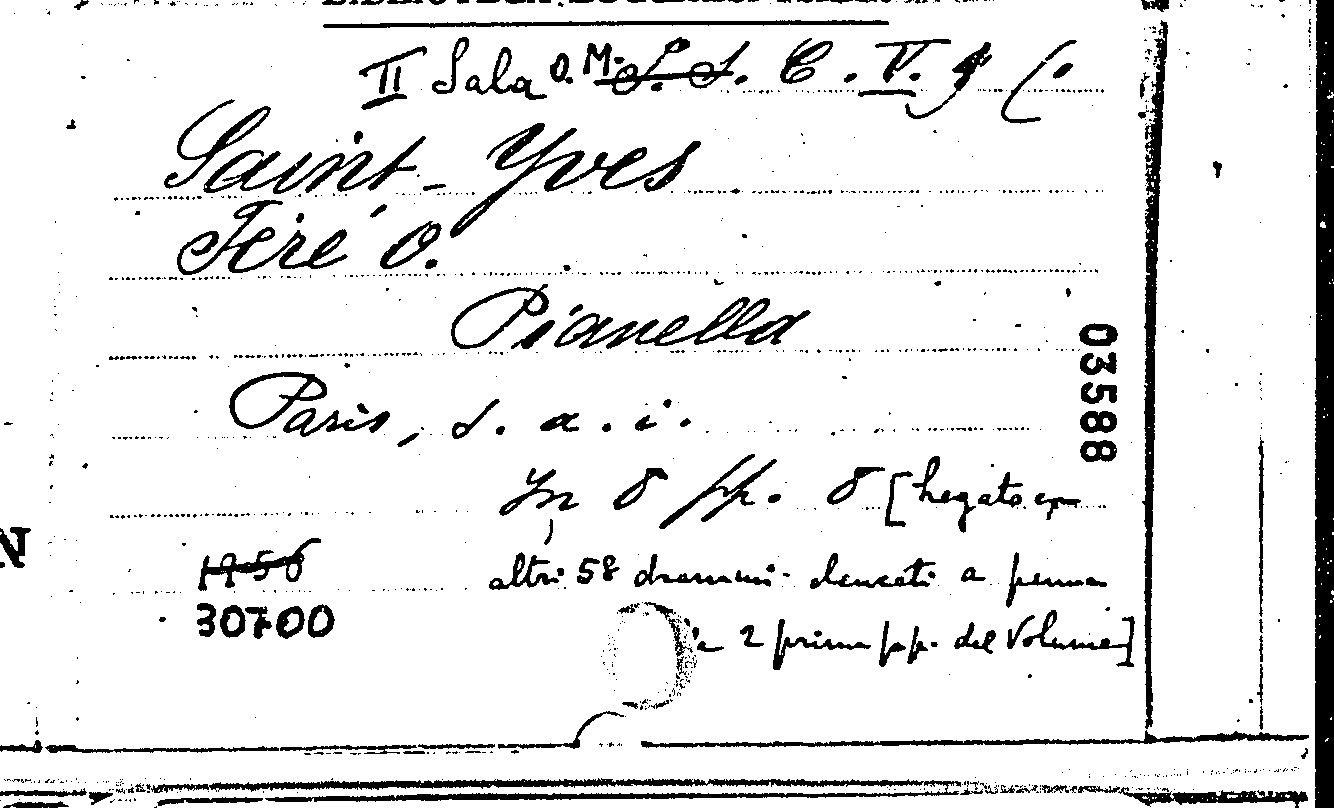 II Sala O. M. S. S. C. V. 9 (.
Saint-Yves
Féré O.
Pianella
Paris, s. a. i.
03588
In 8 pp. 8 [legato con
altri 58 drammi elencati a penna
1956
30700
2 prime pp. del Volume]